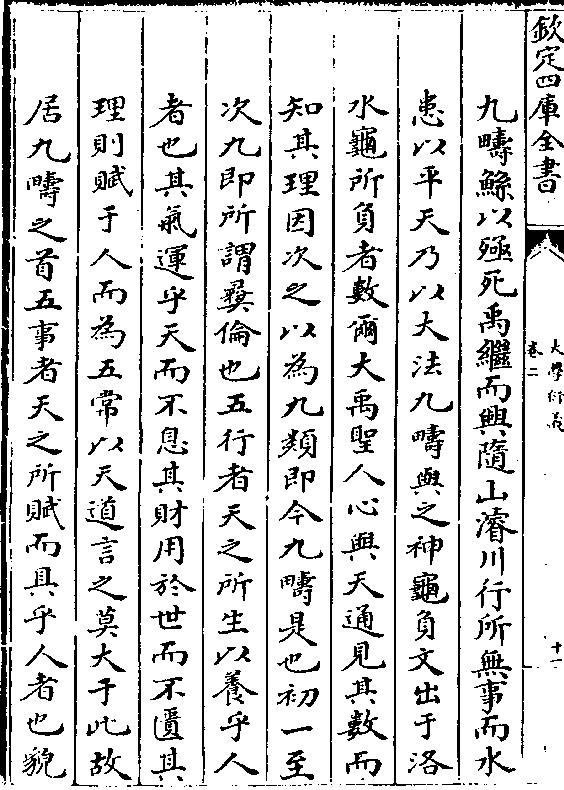 欽定四庫全書
大學衍義
卷二
十一
九疇鯀以殛死禹繼而興隨山濬川行所無事而水
患以平天乃以大法九疇與之神龜負文出于洛
水龜所負者數爾大禹聖人心與天通見其數而
知其理因次之以為九類即今九疇是也初一至
次九即所謂彛倫也五行者天之所生以養乎人
者也其氣運乎天而不息其財用於世而不匱其
理則賦于人而為五常以天道言之莫大于此故
居九疇之首五事者天之所賦而具乎人者也貌